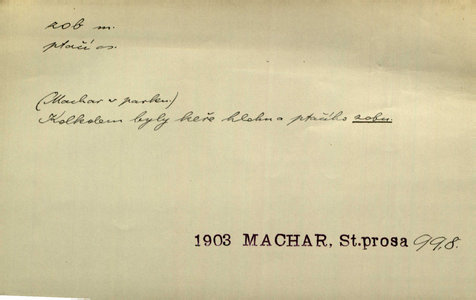 zob m.
ptačí os.
(Machar v parku)
Kolkolem byly keře hlohu a ptačího zobu.
1903 MACHAR, St.prosa 99,8.